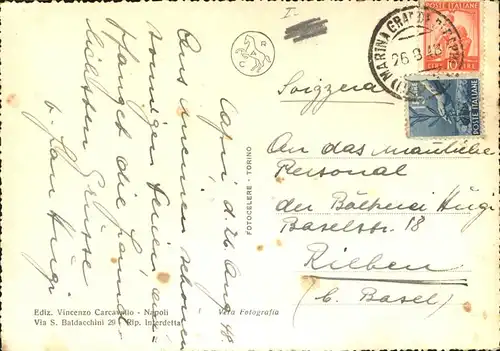 Capri, d. 26. Aug. 48.
Aus meinen schönen
sonnigen Ferien, em-
pfanget die
Grüsse
Hugi
Svizzera
An das männliche
Personal
der Bäckerei Hugi
Baselstr. 18
Riehen
(b. Basel)
POSTE ITALIANE
LIRE 10 LIRE
POSTE ITALIANE
MARINA GRANDE
26.8.48
FOTOCELERE - TORINO
Ediz. Vincenzo Carcavallo - Napoli
Via S. Baldacchini 29 - Rip. Interdetta
Vera Fotografia